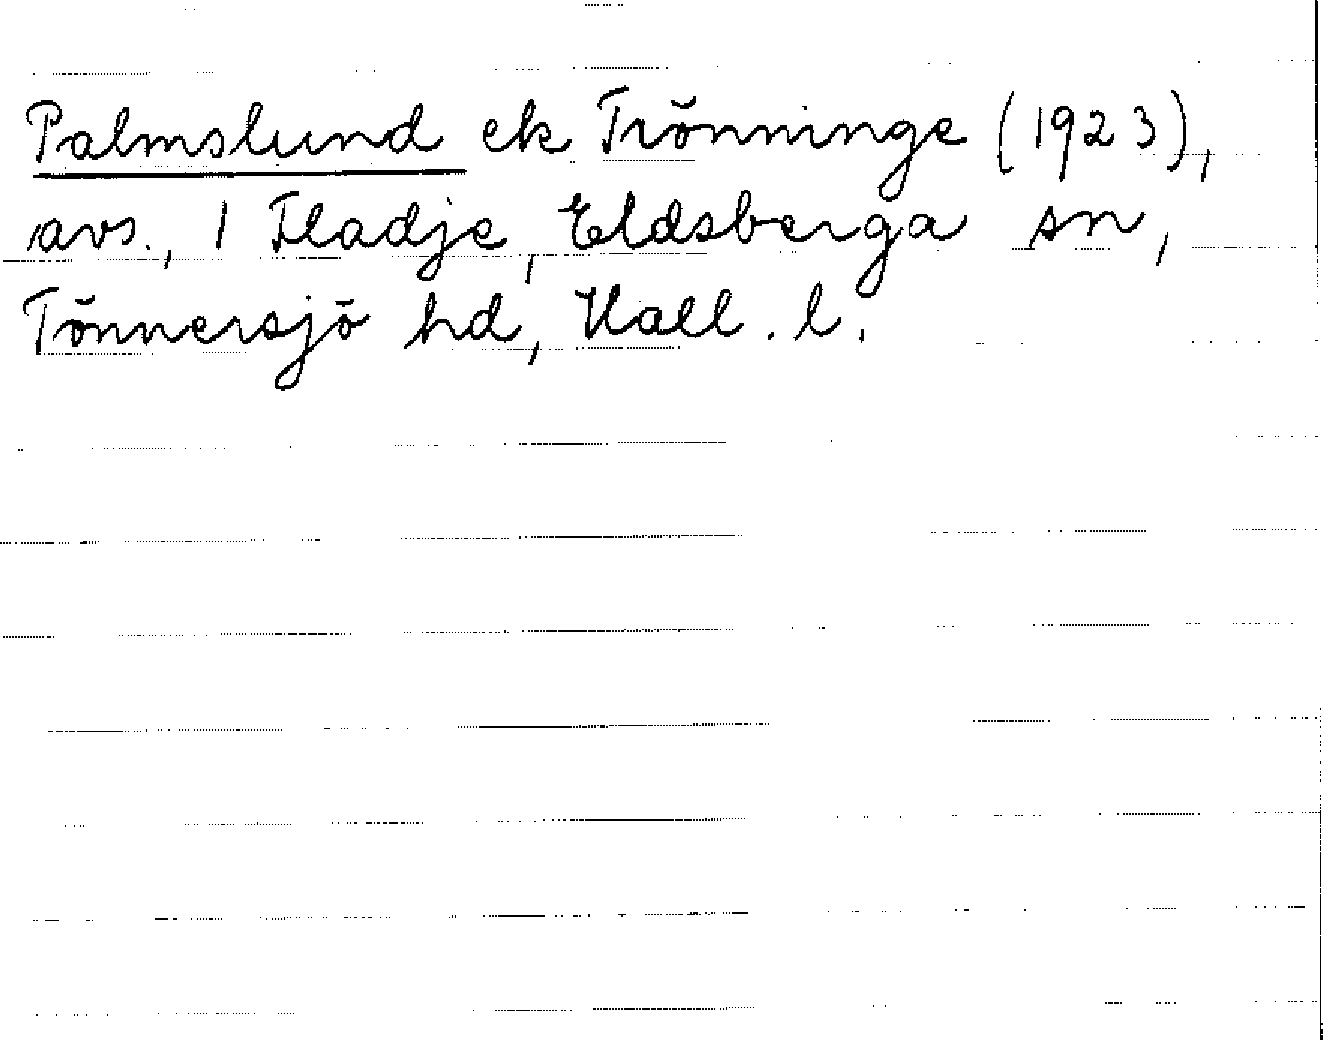 Palmslund ek Trönninge (1923),
avs., 1 Fladje, Eldsberga sn,
Tönnersjö hd, Hall. l.